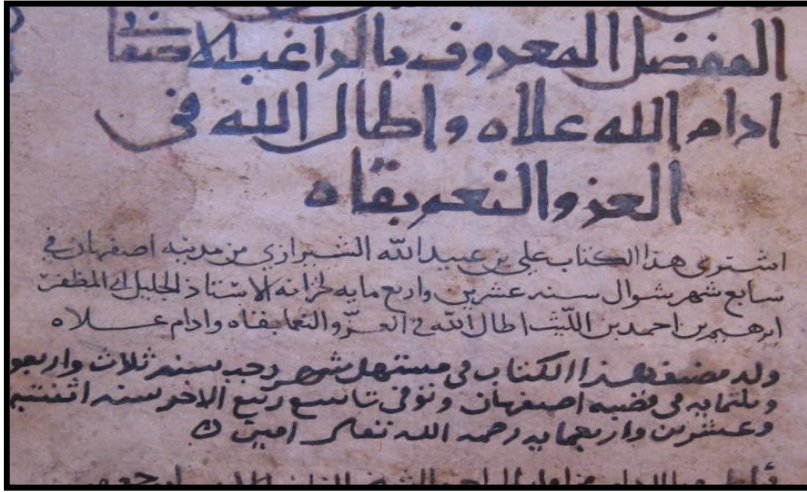 المفضل المعروف بالراغب الاصفهاني
ادام الله علاه واطال الله في
العز والنعم بقاه
اشترى هذا الكتاب علي بن عبيد الله الشيرازي من مدينه اصفهان في
سابع شهر شوال سنه عشرين واربع مايه لخزانه الاستاذ الجليل ابي المظفر
ابرهيم بن احمد بن الليث اطال الله في العز والنعما بقاه وادام عــلاه
ولد مصنف هذا الكتاب في مستهل شهر رجب سنه ثلاث واربعو
وثلثمايه في قصبه اصفهان وتوفي تاسع ربيع الاخر سنه اثنتين
وعشرين واربعمايه رحمه الله تعالى امين